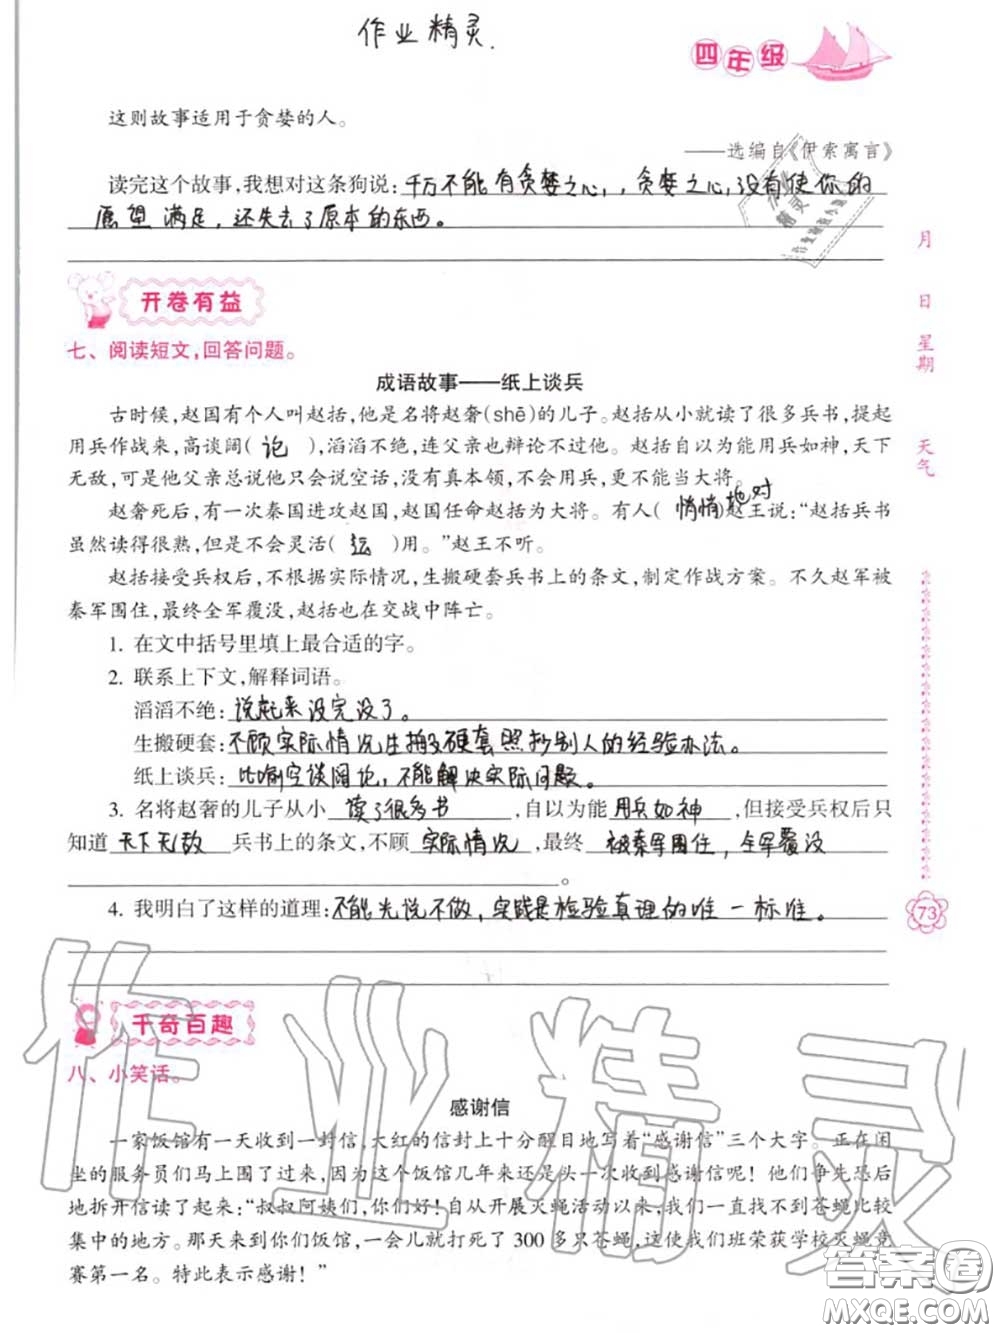 作业精灵.
四年级
这则故事适用于贪婪的人。
——选编自《伊索寓言》
读完这个故事,我想对这条狗说:千万不能有贪婪之心,,贪婪之心,没有使你的
愿望满足,还失去了原本的东西。
月
日
星期
天气
开卷有益
七、阅读短文,回答问题。
成语故事——纸上谈兵
古时候,赵国有个人叫赵括,他是名将赵奢(shē)的儿子。赵括从小就读了很多兵书,提起
用兵作战来,高谈阔( 论 ),滔滔不绝,连父亲也辩论不过他。赵括自以为能用兵如神,天下
无敌,可是他父亲总说他只会说空话,没有真本领,不会用兵,更不能当大将。
赵奢死后,有一次秦国进攻赵国,赵国任命赵括为大将。有人( 悄悄地对 )赵王说:“赵括兵书
虽然读得很熟,但是不会灵活( 运 )用。”赵王不听。
赵括接受兵权后,不根据实际情况,生搬硬套兵书上的条文,制定作战方案。不久赵军被
秦军围住,最终全军覆没,赵括也在交战中阵亡。
1. 在文中括号里填上最合适的字。
2. 联系上下文,解释词语。
滔滔不绝:说起来没完没了。
生搬硬套:不顾实际情况生搬硬套照抄别人的经验办法。
纸上谈兵:比喻空谈阔论,不能解决实际问题。
3. 名将赵奢的儿子从小 读了很多书 ,自以为能 用兵如神 ,但接受兵权后只
知道 天下无敌 兵书上的条文,不顾 实际情况 ,最终 被秦军围住,全军覆没
。
4. 我明白了这样的道理:不能光说不做,实践是检验真理的唯一标准。
73
千奇百趣
八、小笑话。
感谢信
一家饭馆有一天收到一封信,大红的信封上十分醒目地写着“感谢信”三个大字。正在闲
坐的服务员们马上围了过来,因为这个饭馆几年来还是头一次收到感谢信呢!他们争先恐后
地拆开信读了起来:“叔叔阿姨们,你们好!自从开展灭蝇活动以来,我们一直找不到苍蝇比较
集中的地方。那天来到你们饭馆,一会儿就打死了 300 多只苍蝇,这使我们班荣获学校灭蝇竞
赛第一名。特此表示感谢!”
作业精灵
答案圈
MXQE.COM